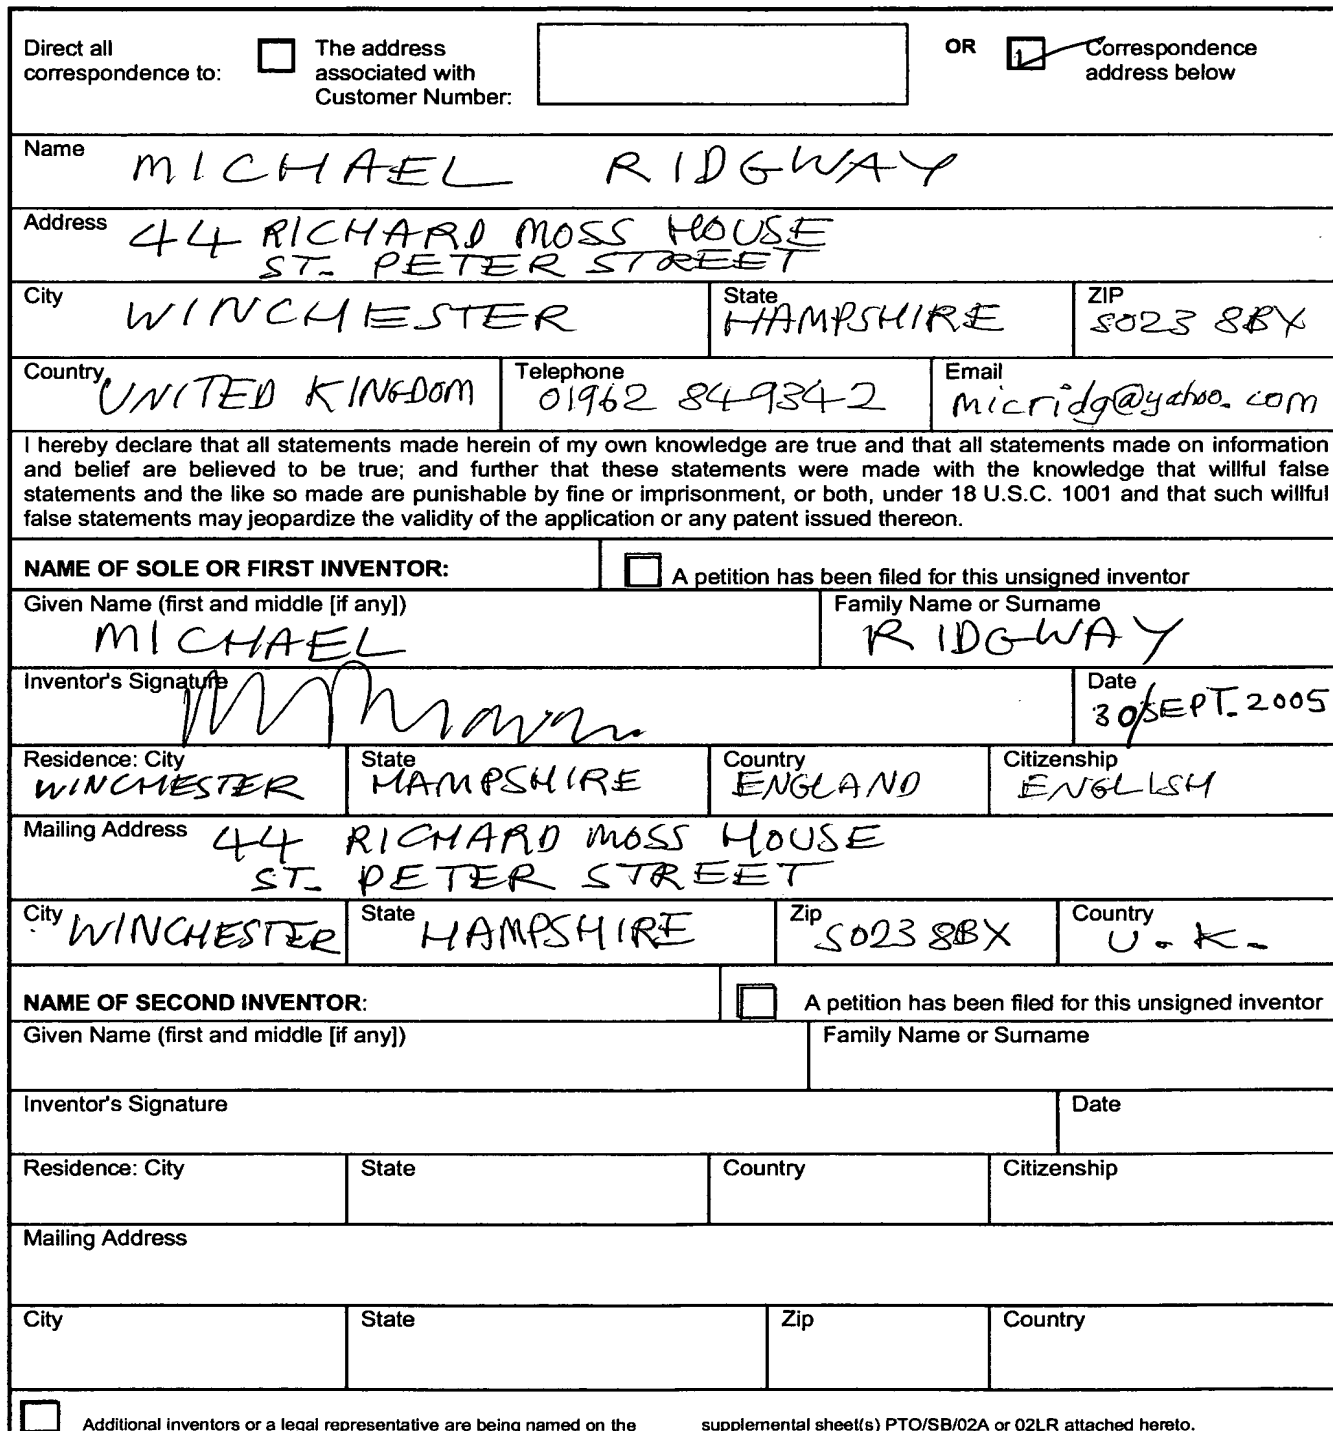 Direct all
correspondence to:
The address
associated with
Customer Number:
OR
Correspondence
address below
Name
MICHAEL RIDGWAY
Address
44 RICHARD MOSS HOUSE
ST. PETER STREET
City
WINCHESTER
State
HAMPSHIRE
ZIP
SO23 8BX
Country
UNITED KINGDOM
Telephone
01962 849342
Email
micridg@yahoo.com
I hereby declare that all statements made herein of my own knowledge are true and that all statements made on information
and belief are believed to be true; and further that these statements were made with the knowledge that willful false
statements and the like so made are punishable by fine or imprisonment, or both, under 18 U.S.C. 1001 and that such willful
false statements may jeopardize the validity of the application or any patent issued thereon.
NAME OF SOLE OR FIRST INVENTOR:
A petition has been filed for this unsigned inventor
Given Name (first and middle [if any])
MICHAEL
Family Name or Surname
RIDGWAY
Inventor's Signature
Date
30/SEPT. 2005
Residence: City
WINCHESTER
State
HAMPSHIRE
Country
ENGLAND
Citizenship
ENGLISH
Mailing Address
44 RICHARD MOSS HOUSE
ST. PETER STREET
City
WINCHESTER
State
HAMPSHIRE
Zip
SO23 8BX
Country
U.K.
NAME OF SECOND INVENTOR:
A petition has been filed for this unsigned inventor
Given Name (first and middle [if any])
Family Name or Surname
Inventor's Signature
Date
Residence: City
State
Country
Citizenship
Mailing Address
City
State
Zip
Country
Additional inventors or a legal representative are being named on the supplemental sheet(s) PTO/SB/02A or 02LR attached hereto.